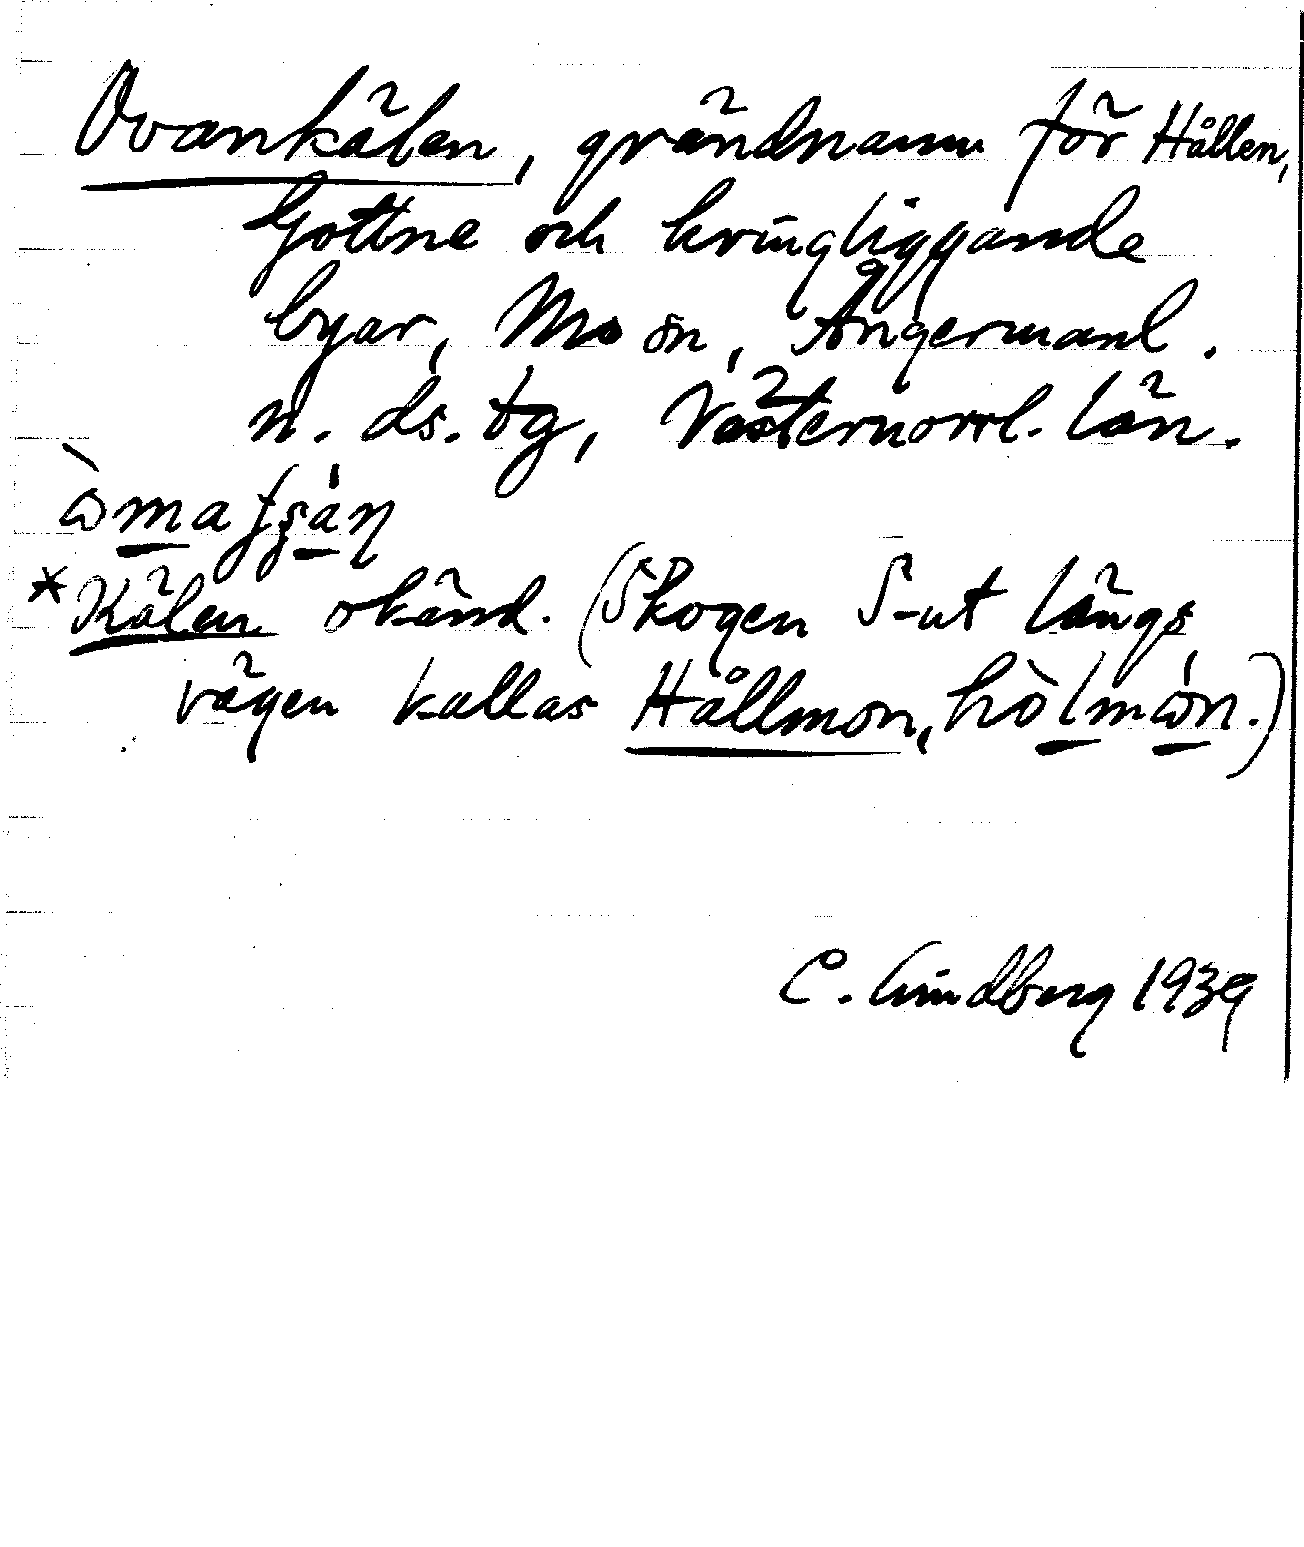 Ovankälen, grändnamn för Hållen,
Gottne och kringliggande
byar, Mo sn, Ångermanl.
n. ds. tg, Västernorrl. län.
*Kälen okänd. (Skogen S-ut längs
vägen kallas Hållmon, hòlmón.)
C. Lindberg 1939